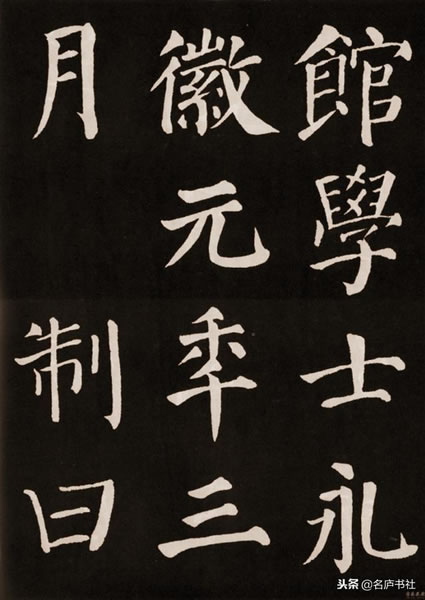 館學士永
徽元年三
月 制曰
头条@名庐书社